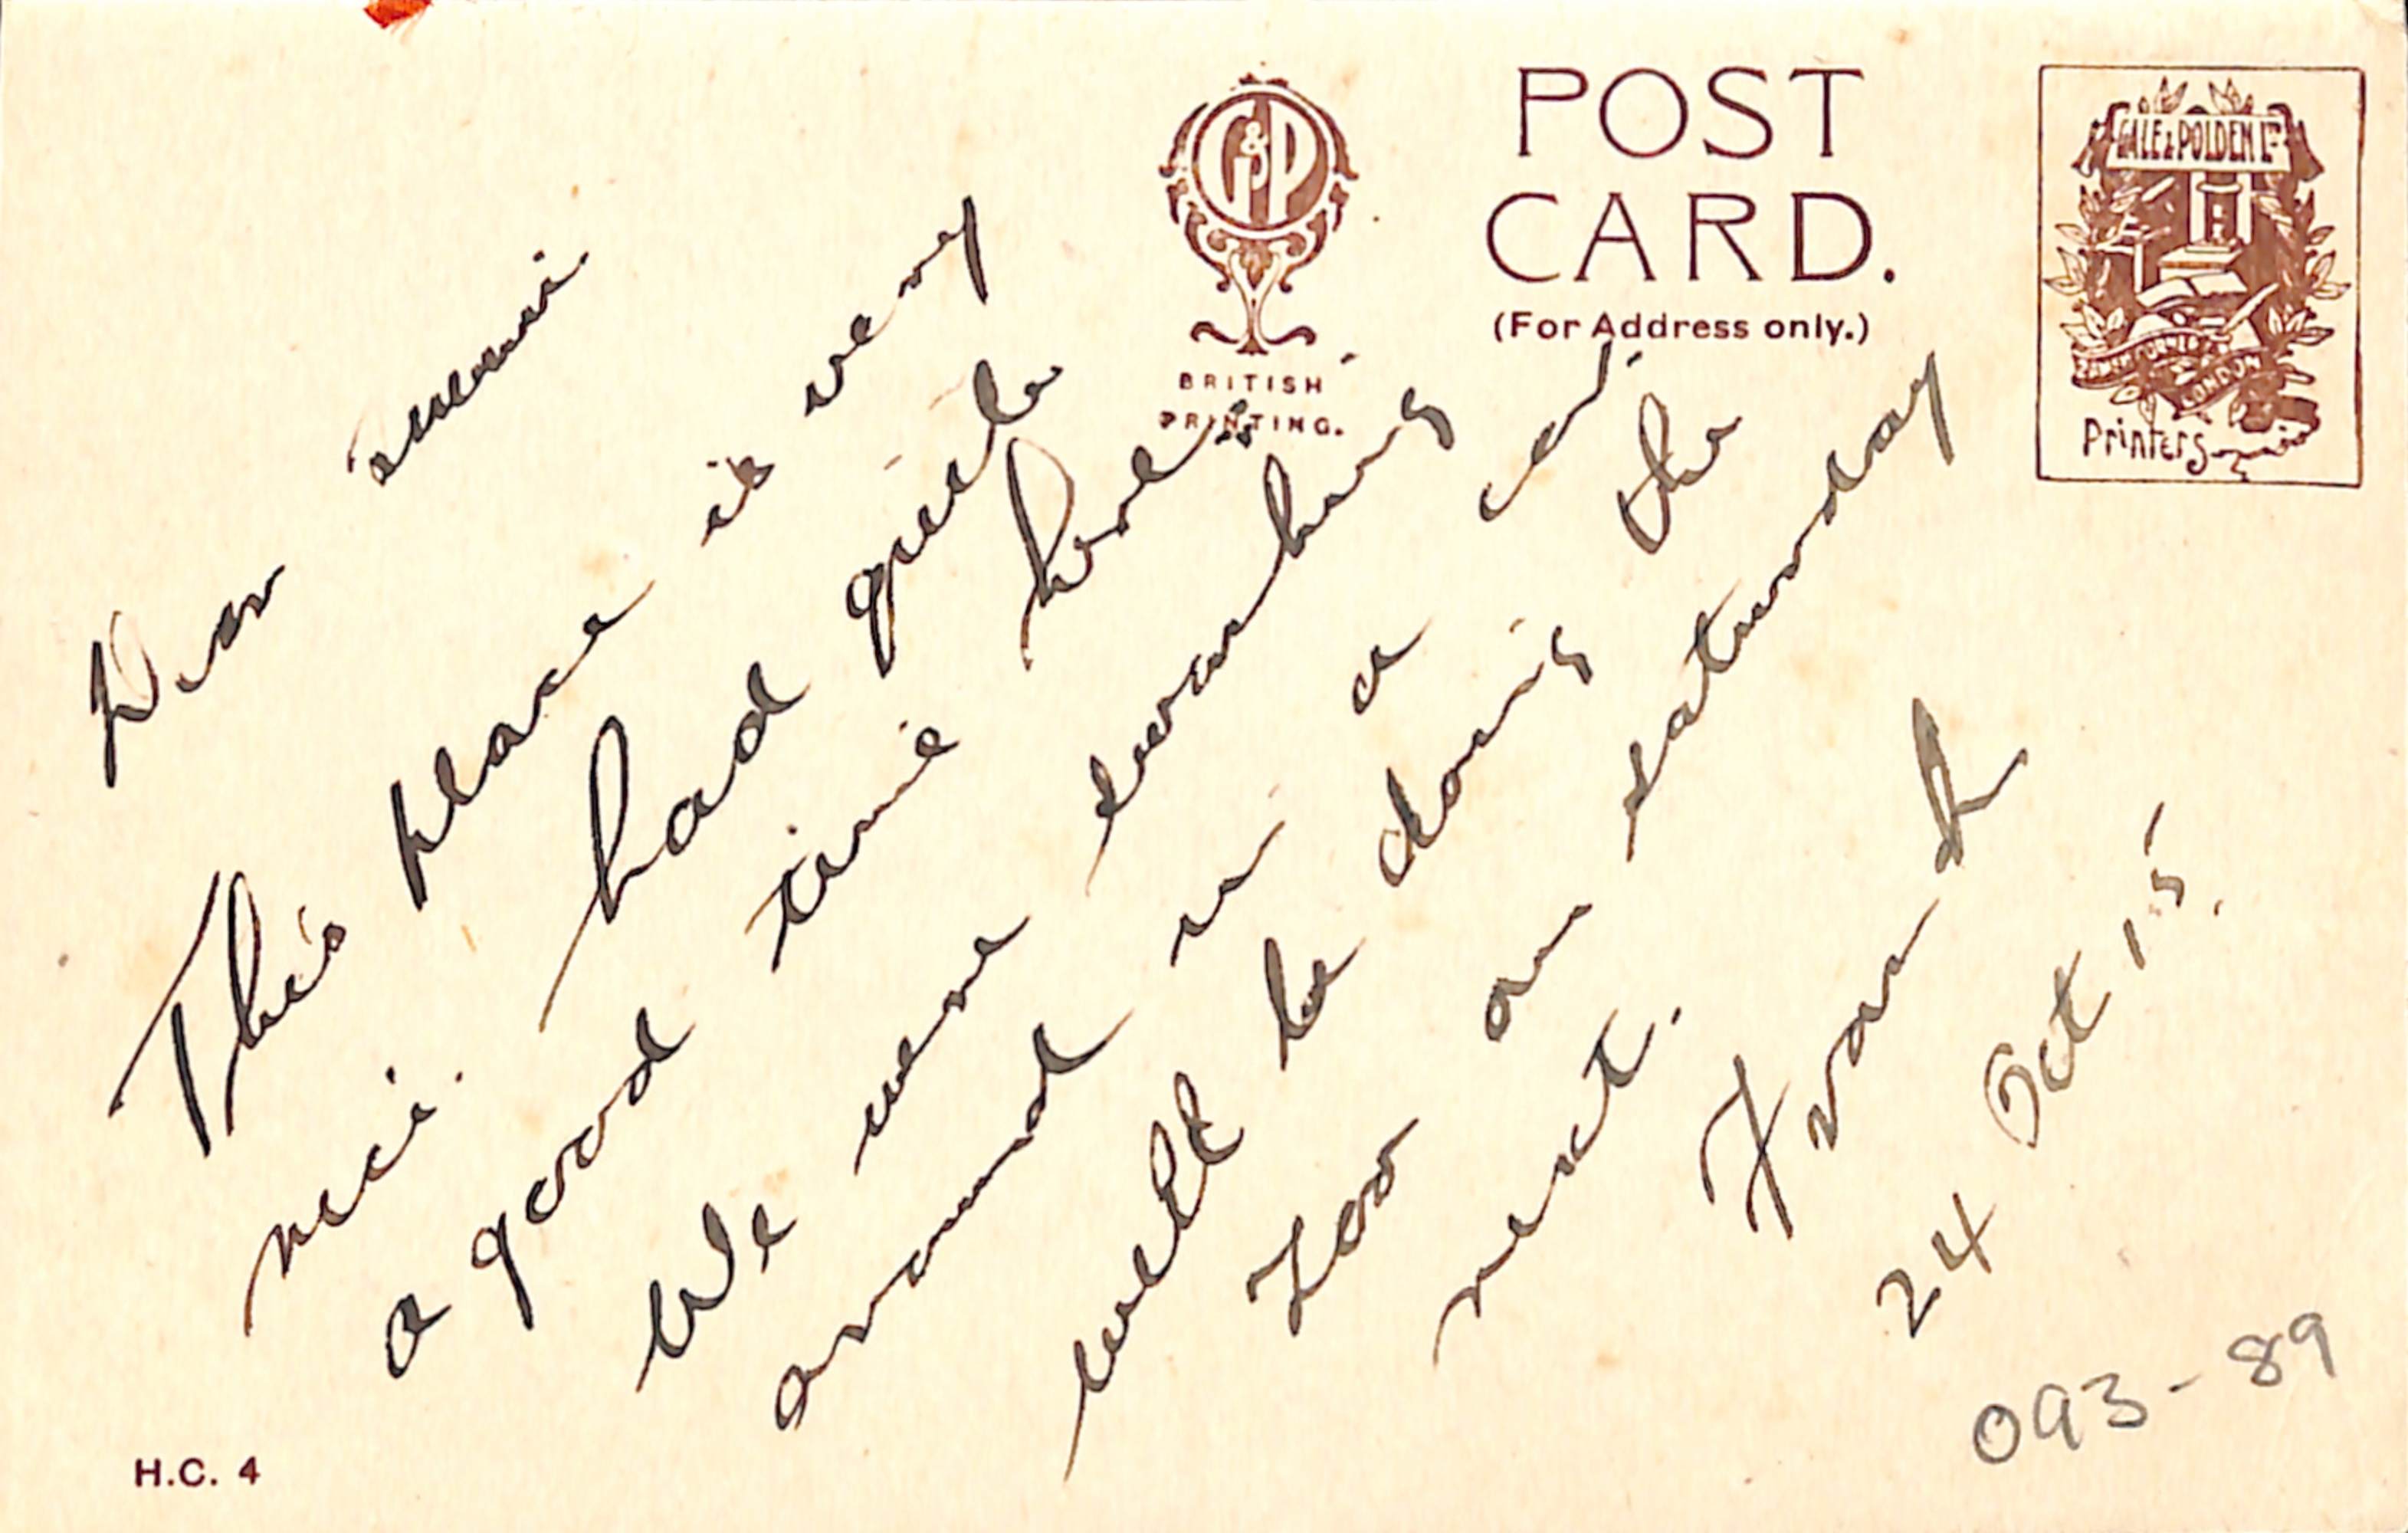 POST
CARD.
(For Address only.)
G&P
BRITISH
PRINTING.
GALE & POLDEN LTD
LONDON
Printers
Dear
This place is very
nice. had quite
a good time here.
We were
around in a car.
will be doing the
Zoo on saturday
next.
Frank
24 Oct 15.
093-89
H.C. 4